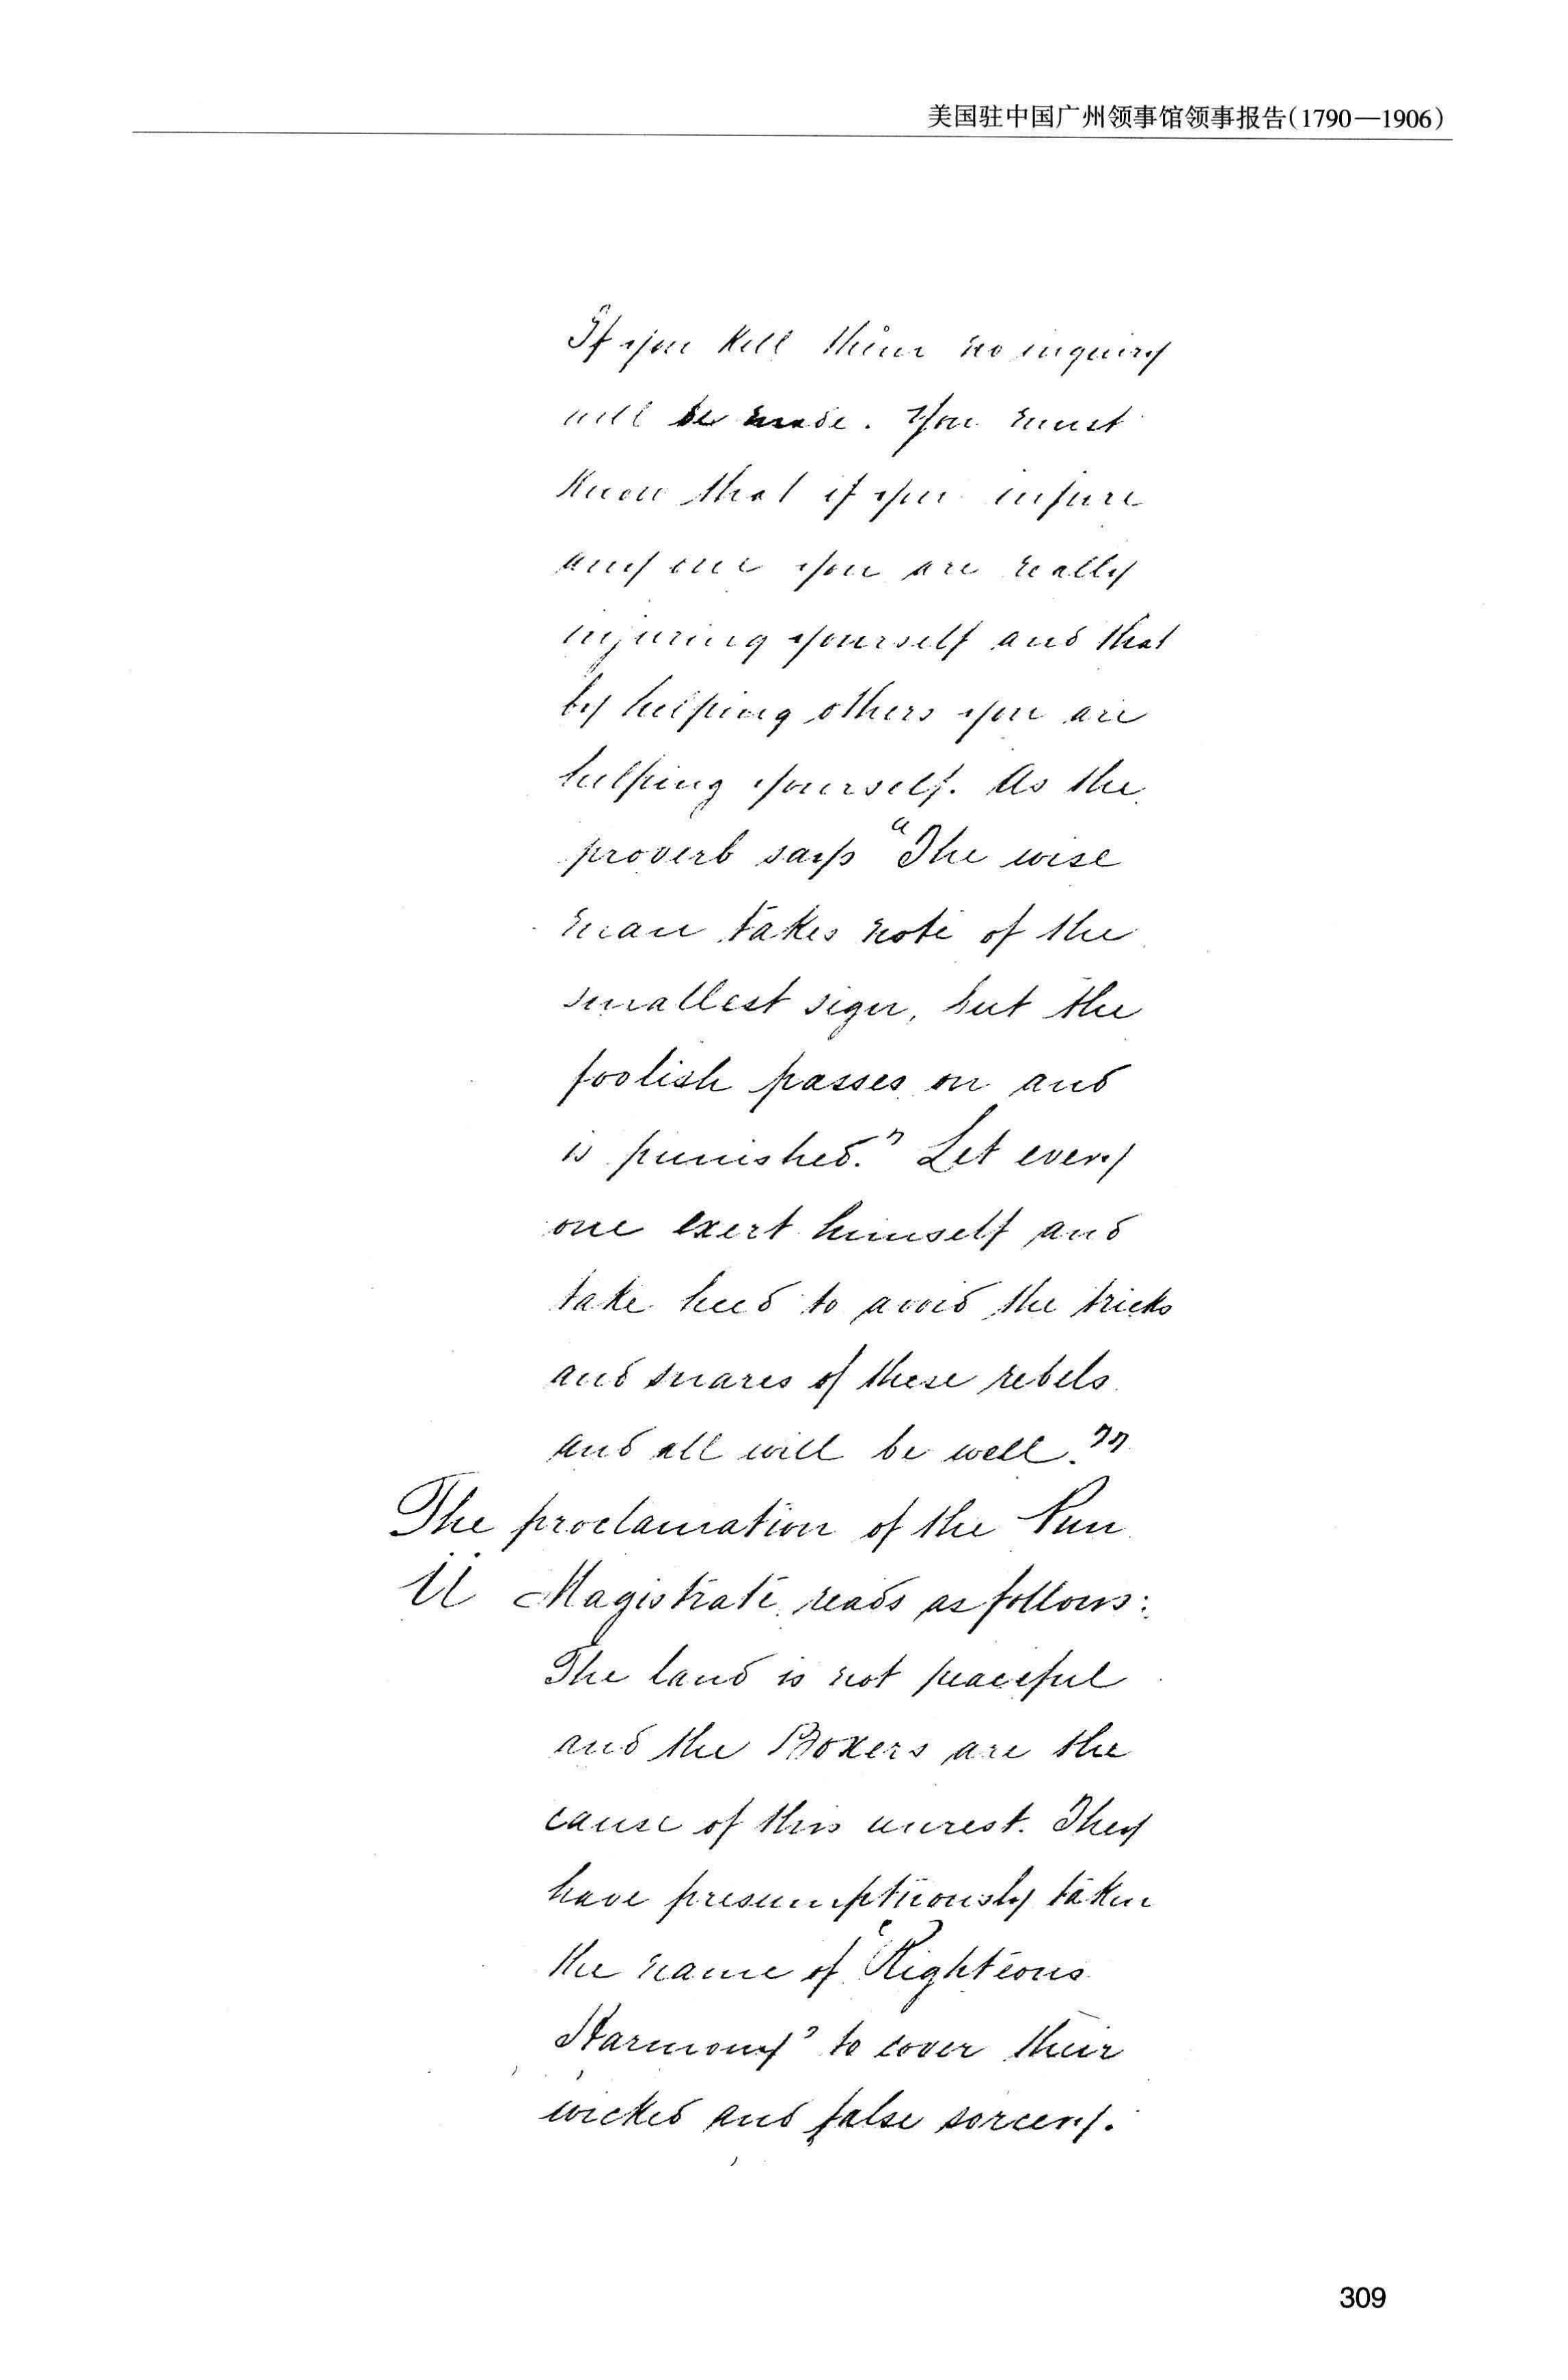 美国驻中国广州领事馆领事报告(1790—1906)
If you kill them no inquiry
will be made. You must
know that if you injure
any one you are really
injuring yourself and that
by helping others you are
helping yourself. As the
proverb says "The wise
man takes note of the
smallest sign, but the
foolish passes on and
is punished." Let every
one exert himself and
take heed to avoid the tricks
and snares of these rebels
and all will be well.""
The proclamation of the Pun
Ü Magistrate reads as follows:
The land is not peaceful
and the Boxers are the
cause of this unrest. They
have presumptuously taken
the name of "Righteous
Harmony" to cover their
wicked and false sorcery.
309